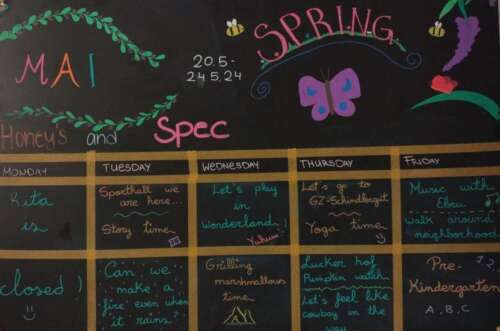 SPRING
MAI
20.5-
24.5.24
Honey's and Spec
MONDAY
TUESDAY
WEDNESDAY
THURSDAY
FRIDAY
Kita
is
closed!
Sporthall we
are here...
Story time
Let's play
in
Wonderland!
Yuhuu
Let's go to
GZ-Schindlergut
Yoga time
Music with
Ebru
Walk around
neighborhood
Can we
make a
fire even when
it rains?
Grilling
marshmallows
time
Lucker hof
Pumpkin watch
Let's feel like
cowboy in the
Pre-
Kindergarten
A, B, C
1, 2